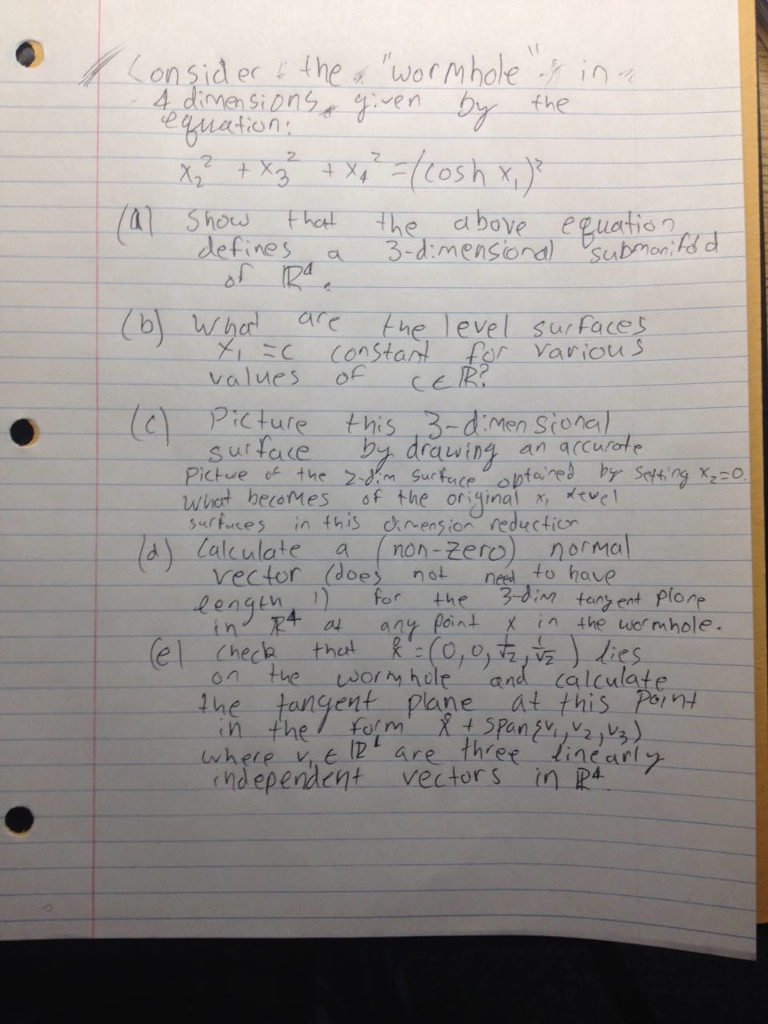 Consider the "wormhole" in
4 dimensions given by the
equation:
x₂² + x₃² + x₄² = (cosh x₁)²
(a) Show that the above equation
defines a 3-dimensional submanifold
of ℝ⁴.
(b) What are the level surfaces
x₁ = c constant for various
values of c ∈ ℝ?
(c) Picture this 3-dimensional
surface by drawing an accurate
Picture of the 2-dim surface optained by setting x₂=0.
What becomes of the original x₁ level
surfaces in this dimension reduction
(d) Calculate a (non-zero) normal
vector (does not need to have
length 1) for the 3-dim tangent plane
in ℝ⁴ at any point x in the wormhole.
(e) Check that x̂ = (0, 0, 1/√2, 1/√2) lies
on the wormhole and calculate
the tangent plane at this point
in the form x̂ + span{v₁, v₂, v₃)
where ∈ are three linearly
independent vectors in ℝ⁴.